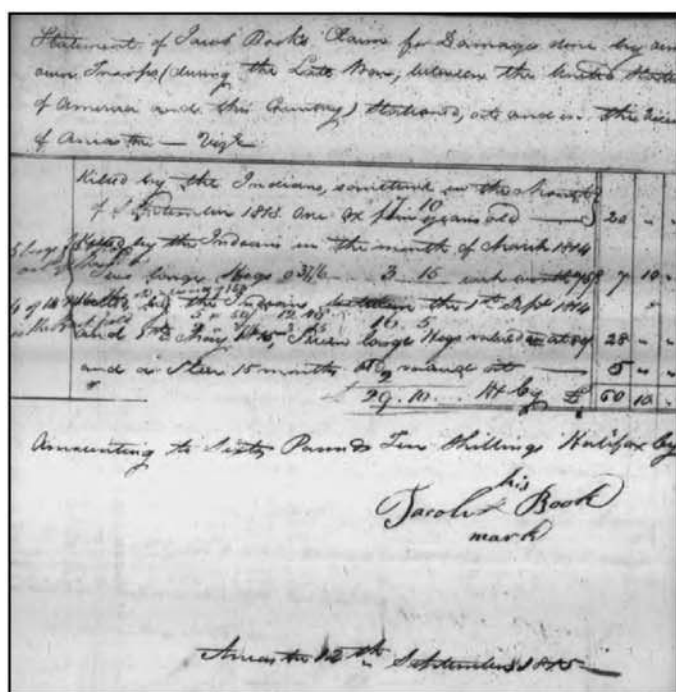 Statement of Jacob Book's Claim for Damages done by
own Troops (during the Late War, between the United States
of America and this Country) Stationed, at and in the
of Ancaster — Viz
Killed by the Indians, sometime in the Month
17. 10
of September 1813 one ox years old — 20 " "
Killed by the Indians in the month of March 1814
Two large Hogs 3 15 each 7 10 "
by the Indians, between the 1st Sept 1814
16. 5
and May 1815, Seven large Hogs valued at 28 " "
and a Steer 15 months old valued at — 5 " "
29. 10 H Cy £ 60 10 "
Amounting to Sixty Pounds Ten Shillings Halifax Cy
his
Jacob x Book
mark
Ancaster 12th September 1815 —